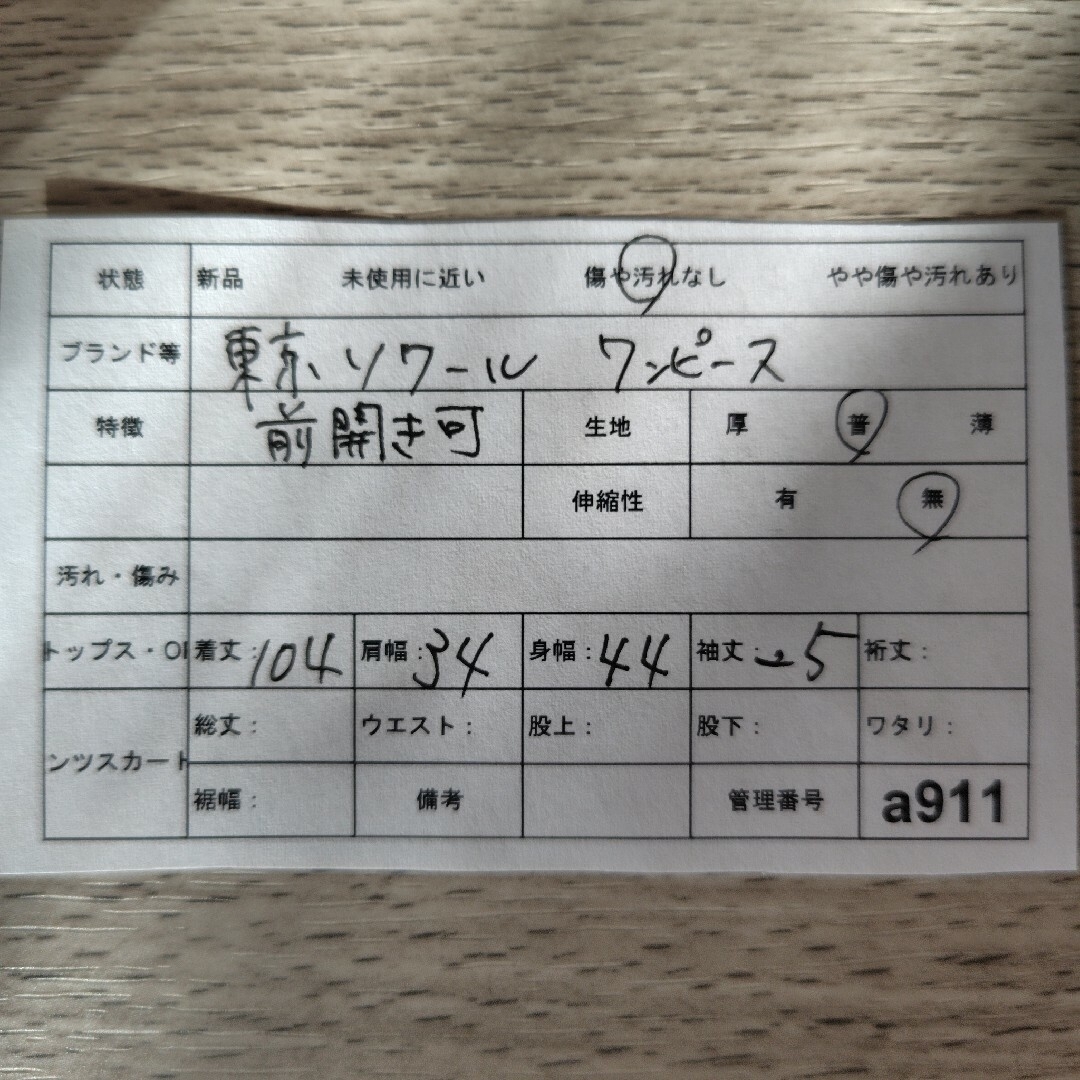 状態 新品 未使用に近い 傷や汚れなし やや傷や汚れあり
ブランド等 東京ソワール ワンピース
特徴 前開き可 生地 厚 普 薄
伸縮性 有 無
汚れ・傷み
トップス・O 着丈：104 肩幅：34 身幅：44 袖丈： 裄丈：
ンツスカート 総丈： ウエスト： 股上： 股下： ワタリ：
裾幅： 備考 管理番号 a911